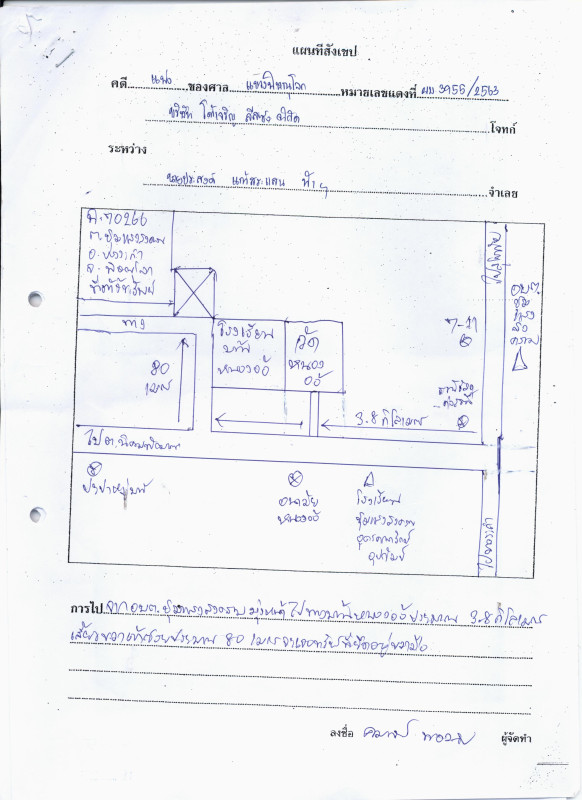 แผนที่สังเขป
คดี แพ่ง ของศาล แขวงพิษณุโลก หมายเลขแดงที่ ผบ 3955/2563
บริษัท โตโยต้า ลีสซิ่ง โจทก์
ระหว่าง
นายประสงค์ จำเลย
น.ส.70266
ต.ชุมแสงสงคราม
อ.บางระกำ
จ.พิษณุโลก
ที่ตั้งทรัพย์
ทาง
80
เมตร
โรงเรียน
บ้าน
หนองอ้อ
วัด
หนอง
อ้อ
7-11
อบต.
ชุม
แสง
สง
คราม
3.8 กิโลเมตร
ไปบางระกำ
อนามัย
หนองอ้อ
โรงเรียน
ชุมแสงสงคราม
อุดรคณารักษ์
อุปถัมภ์
การไป จากอบต.ชุมแสงสงคราม มุ่งหน้าไปทางบ้านหนองอ้อประมาณ 3.8 กิโลเมตร
เลี้ยวขวาเข้าซอยประมาณ 80 เมตร จะเจอทรัพย์ที่ยึดอยู่ขวามือ
ลงชื่อ ผู้จัดทำ